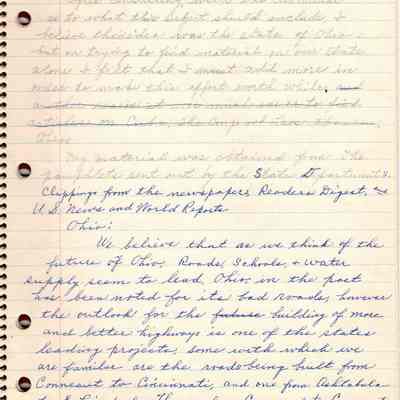 as to what this subject should include, I
believe the idea was the state of Ohio -
but on trying to find material on our State
alone I felt that I must add more in
order to make this effort worth while, and
on Cuba, the
Ohio.
My material was obtained from the
pamphlets sent out by the State Department &
Clippings from the newspapers, Readers Digest, &
U.S. News and World Reports
Ohio:
We believe that as we think of the
future of Ohio, Roads, Schools, & water
supply seem to lead. Ohio, in the past
has been noted for its bad roads, however
the outlook for the future building of more
and better highways is one of the states
leading projects, some with which we
are familiar are the road being built from
Conneaut to Cincinnati, and one from Ashtabula